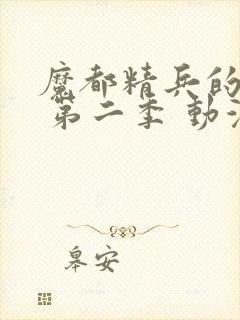 魔都精兵的
第二季 動
皋安